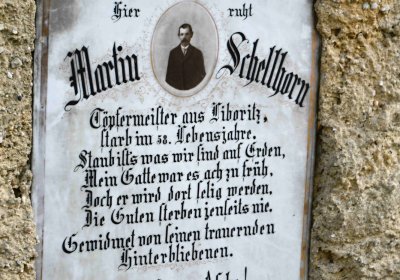 Hier ruht
Martin Schellhorn
Töpfermeister aus Liboritz,
starb im 58. Lebensjahre.
Staub ists was wir sind auf Erden,
Mein Gatte war es ach zu früh,
Doch er wird dort selig werden,
Die Guten sterben jenseits nie.
Gewidmet von seinen trauernden
Hinterbliebenen.